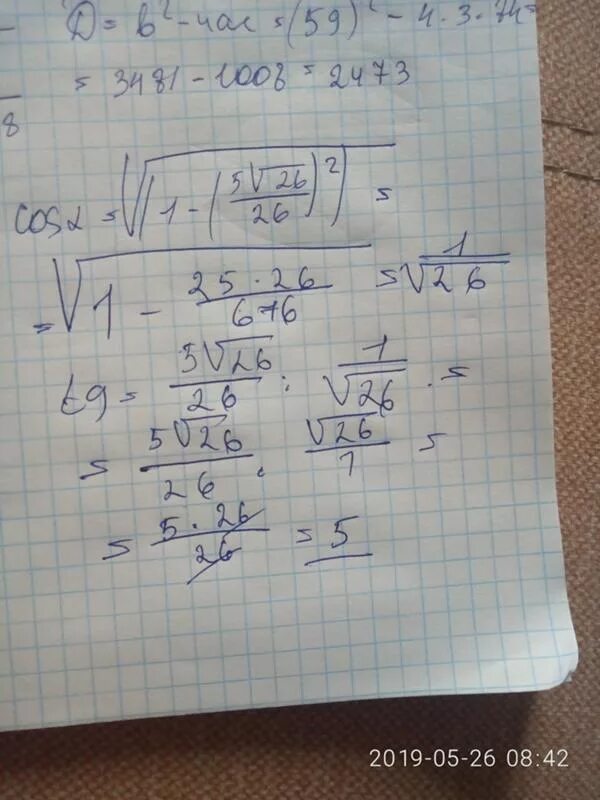 D = b² - 4ac = (59)² - 4 · 3 ·
= 3481 - 1008 = 2473
8
cosα = √(1 - (5√26/26)²) =
= √1 - 25 · 26/676 = 1/√26
tg = 5√26/26 : 1/√26 · =
= 5√26/26 · √26/1 =
= 5 · 26/26 = 5
2019-05-26 08:42